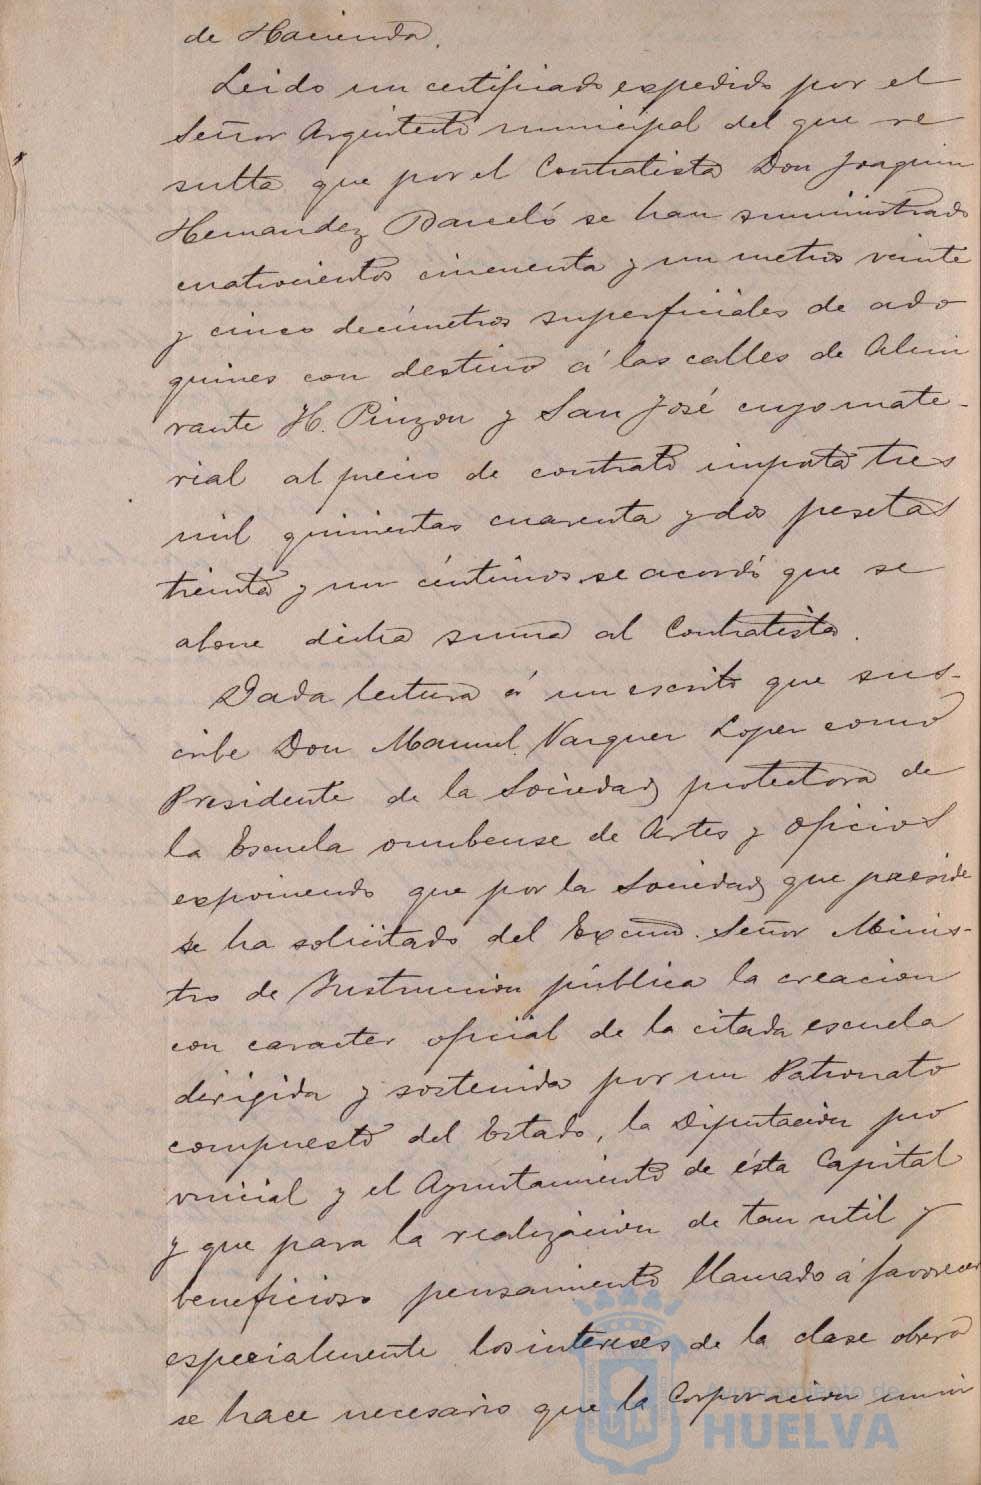 de Hacienda.
Leido un certificado expedido por el
Señor Arquitecto municipal del que re
sulta que por el Contratista Don Joaquin
Hernandez Barceló se han suministrado
cuatrocientos cincuenta y un metros veinte
y cinco decímetros superficiales de ado
quines con destino á las calles de Almi
rante H. Pinzon y San José cuyo mate-
rial al precio de contrato importa tres
mil quinientas cuarenta y dos pesetas
treinta y un céntimos se acordó que se
abone dicha suma al Contratista.
Dada lectura á un escrito que sus-
cribe Don Manuel Vazquez Lopez como
Presidente de la Sociedad protectora de
la Escuela onubense de Artes y Oficios
exponiendo que por la Sociedad que preside
se ha solicitado del Excmo. Señor Minis-
tro de Instrucion pública la creacion
con caracter oficial de la citada escuela
dirigida y sostenida por un Patronato
compuesto del Estado, la Diputación pro
vincial y el Ayuntamiento de ésta Capital
y que para la realización de tan util y
beneficioso pensamiento llamado á favorecer
especialmente los intereses de la clase obrera
se hace necesario que la Corporacion muni
Ayuntamiento de
HUELVA